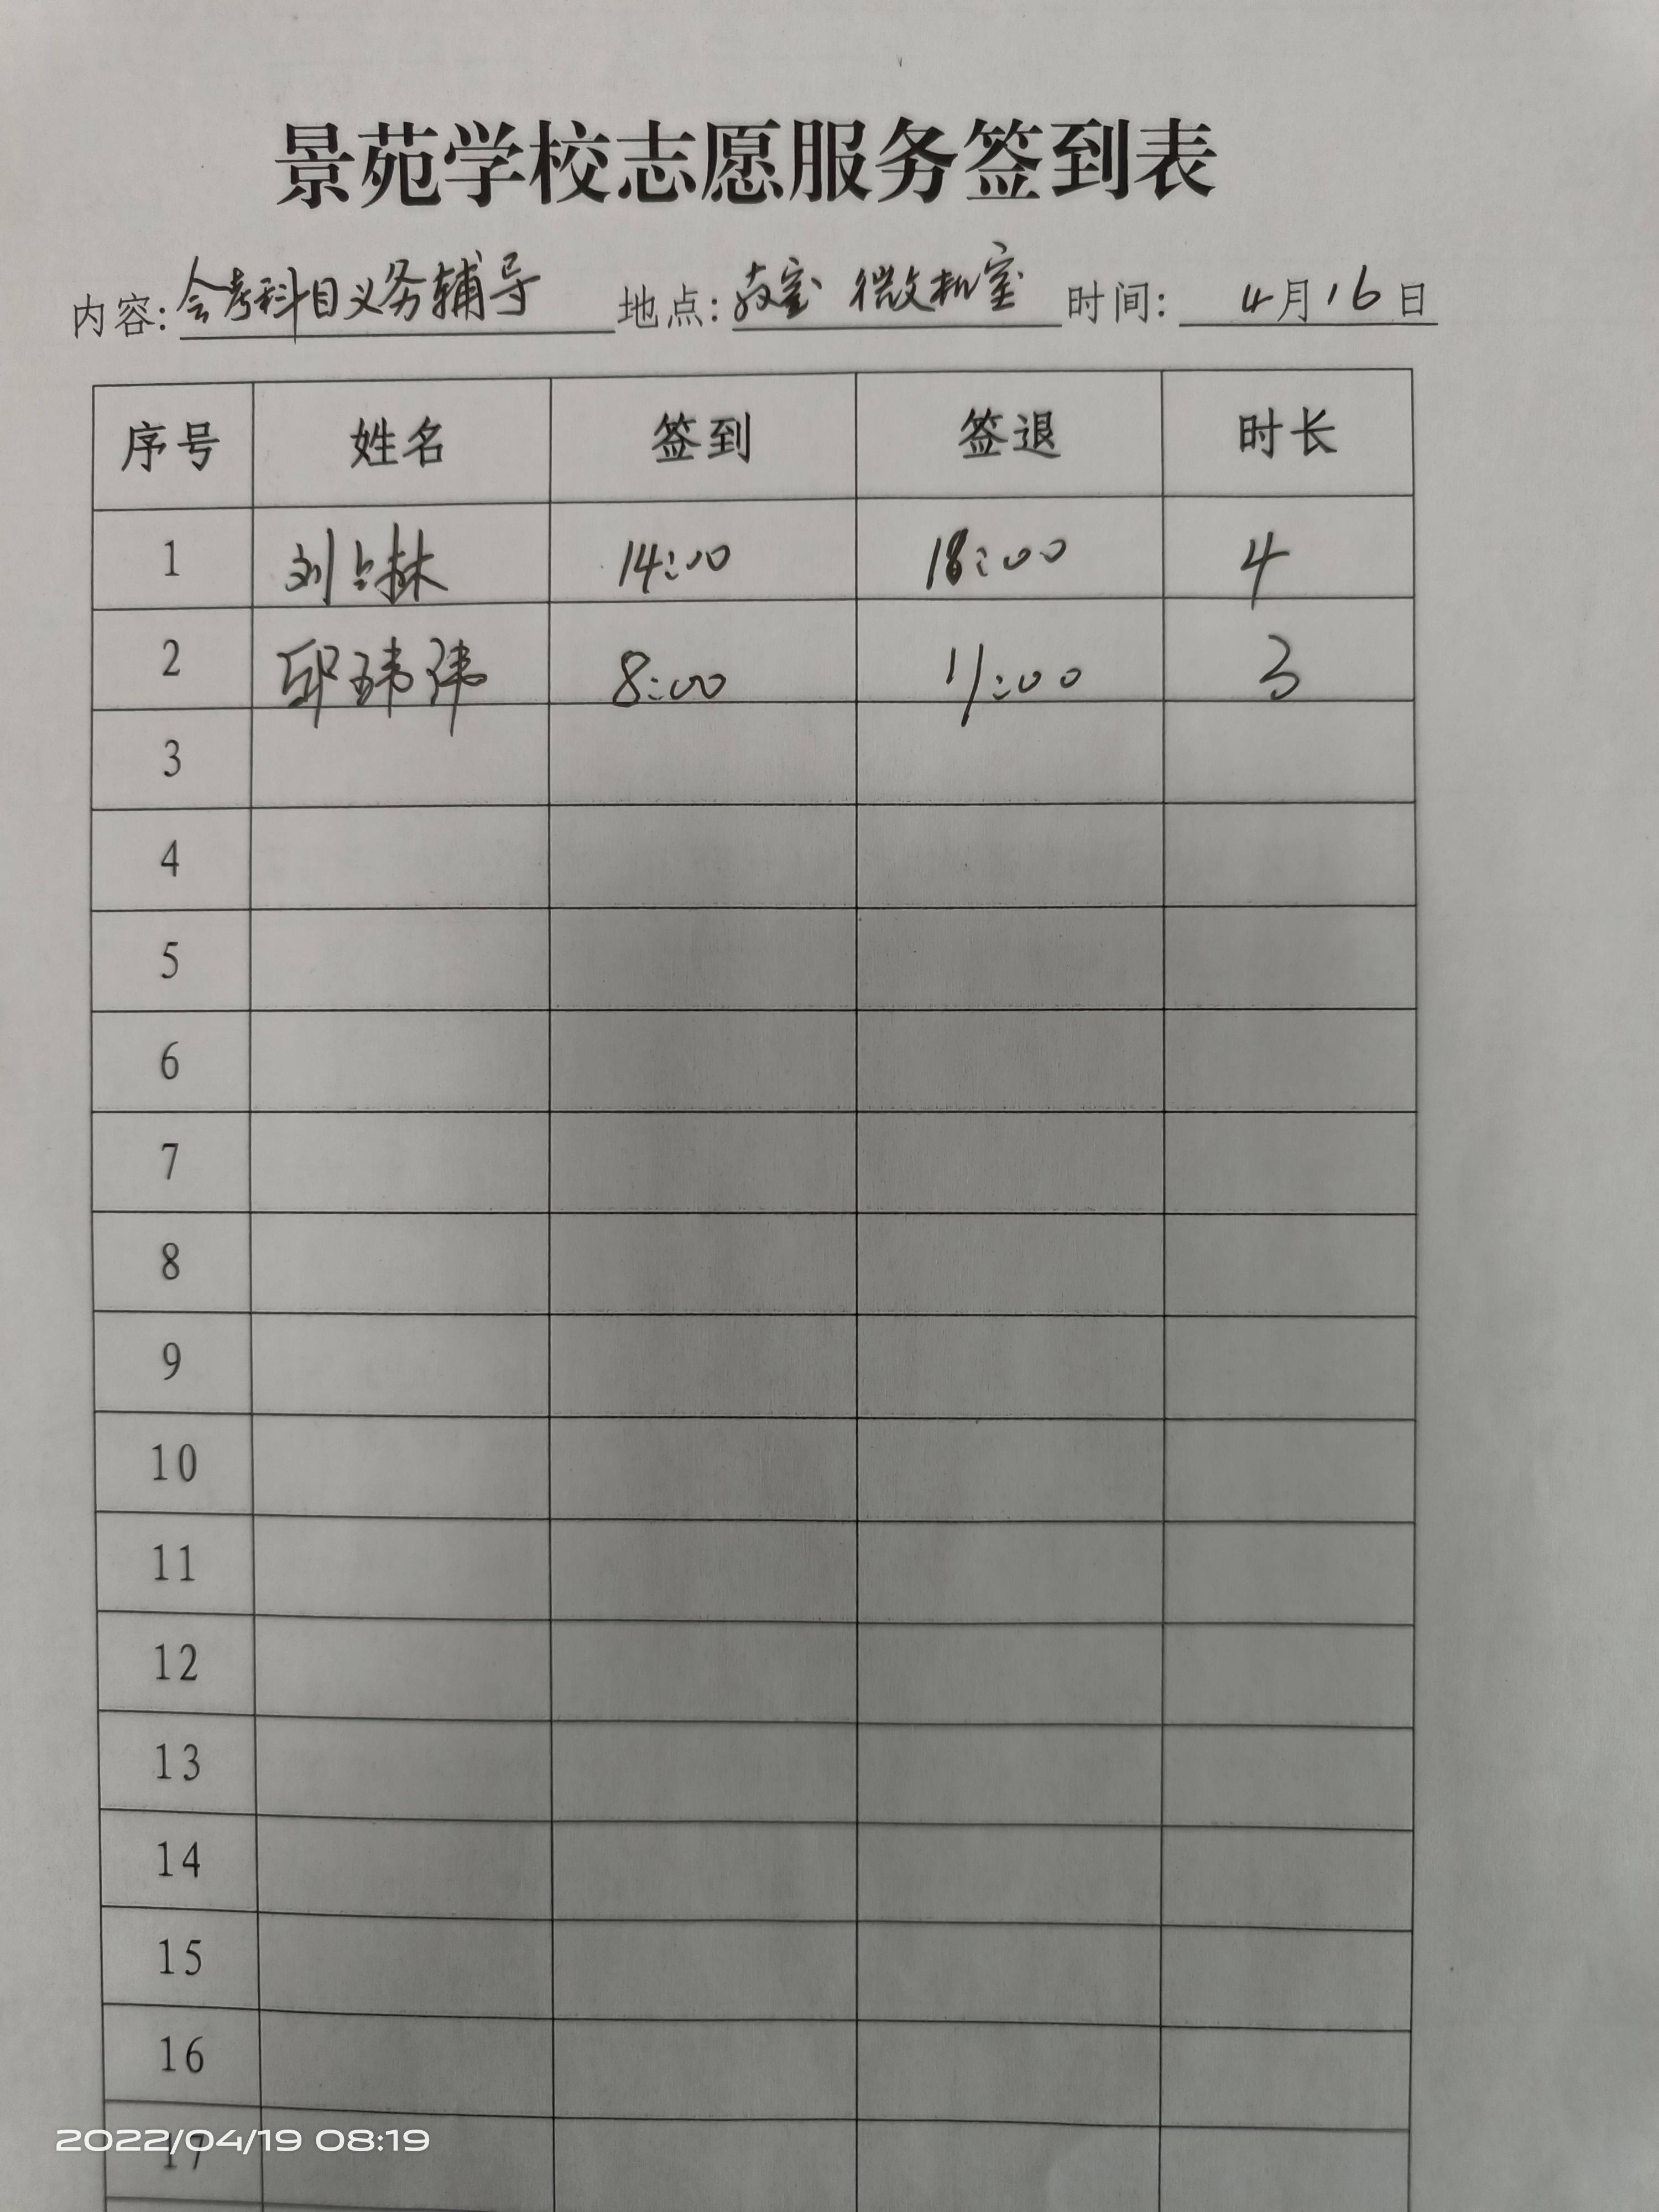 景苑学校志愿服务签到表
内容: 会考科目义务辅导 地点: 教室 微机室 时间: 4月16日
序号 姓名 签到 签退 时长
1 刘占林 14:00 18:00 4
2 邱玮玮 8:00 11:00 3
3
4
5
6
7
8
9
10
11
12
13
14
15
16
17
2022/04/19 08:19